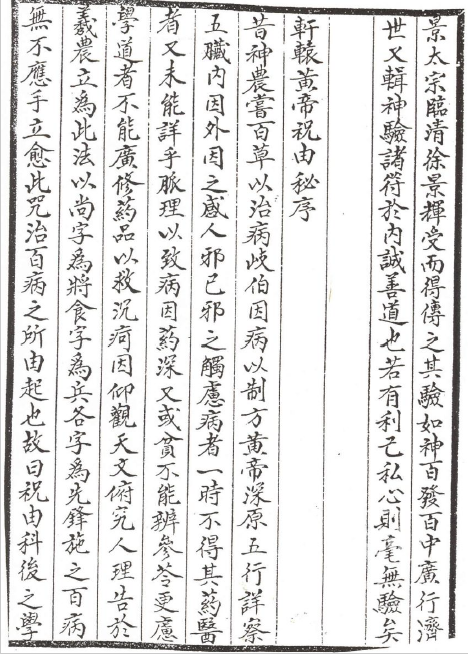 景太宗臨清徐景輝受而得傳之其驗如神百發百中廣行濟
世又輯神驗諸符於內誠善道也若有利己私心則毫無驗矣
軒轅黃帝祝由秘序
昔神農嘗百草以治病歧伯因病以制方黃帝深原五行詳察
五臟內因外因之感人邪己邪之觸慮病者一時不得其藥醫
者又未能詳乎脈理以致病因藥深又或貧不能辨參苓更慮
學道者不能廣修藥品以救沉疴因仰觀天文俯究人理告於
羲農立為此法以尚字為將食字為兵各字為先鋒施之百病
無不應手立愈此咒治百病之所由起也故曰祝由科後之學